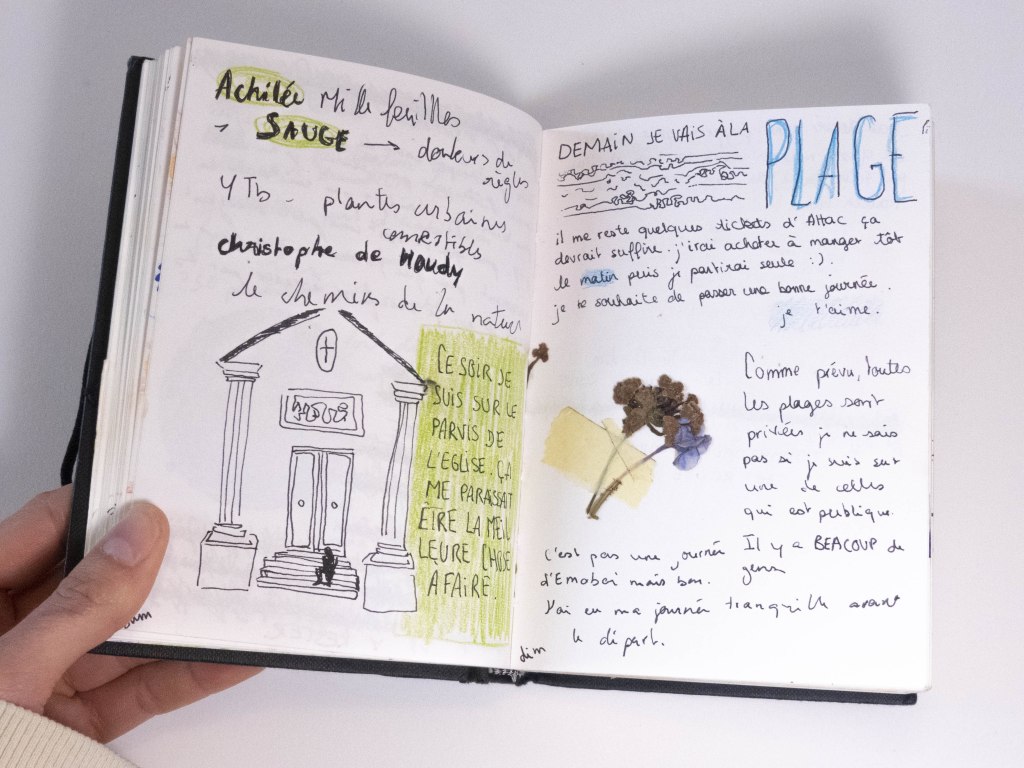 Achilée Mille feuilles
SAUGE → douleurs de
règles
YTb - plantes urbaines
comestibles
christophe de Houdy
le chemins de la nature
CE SOIR JE
SUIS SUR LE
PARVIS DE
L'EGLISE. ÇA
ME PARAISSAIT
ÊTRE LA MEIL
LEURE CHOSE
A FAIRE.
DEMAIN JE VAIS À LA
PLAGE
il me reste quelques tickets d'Attac ça
devrait suffire. j'irai acheter à manger tôt
le matin puis je partirai seule :).
je te souhaite de passer une bonne journée.
je t'aime.
Comme prévu, toutes
les plages sont
privées je ne sais
pas si je suis sur
une de celles
qui est publique.
Il y a BEACOUP de
gens
c'est pas une journée
d'Emobai mais bon.
J'ai eu ma journée tranquille avant
le départ.
dim